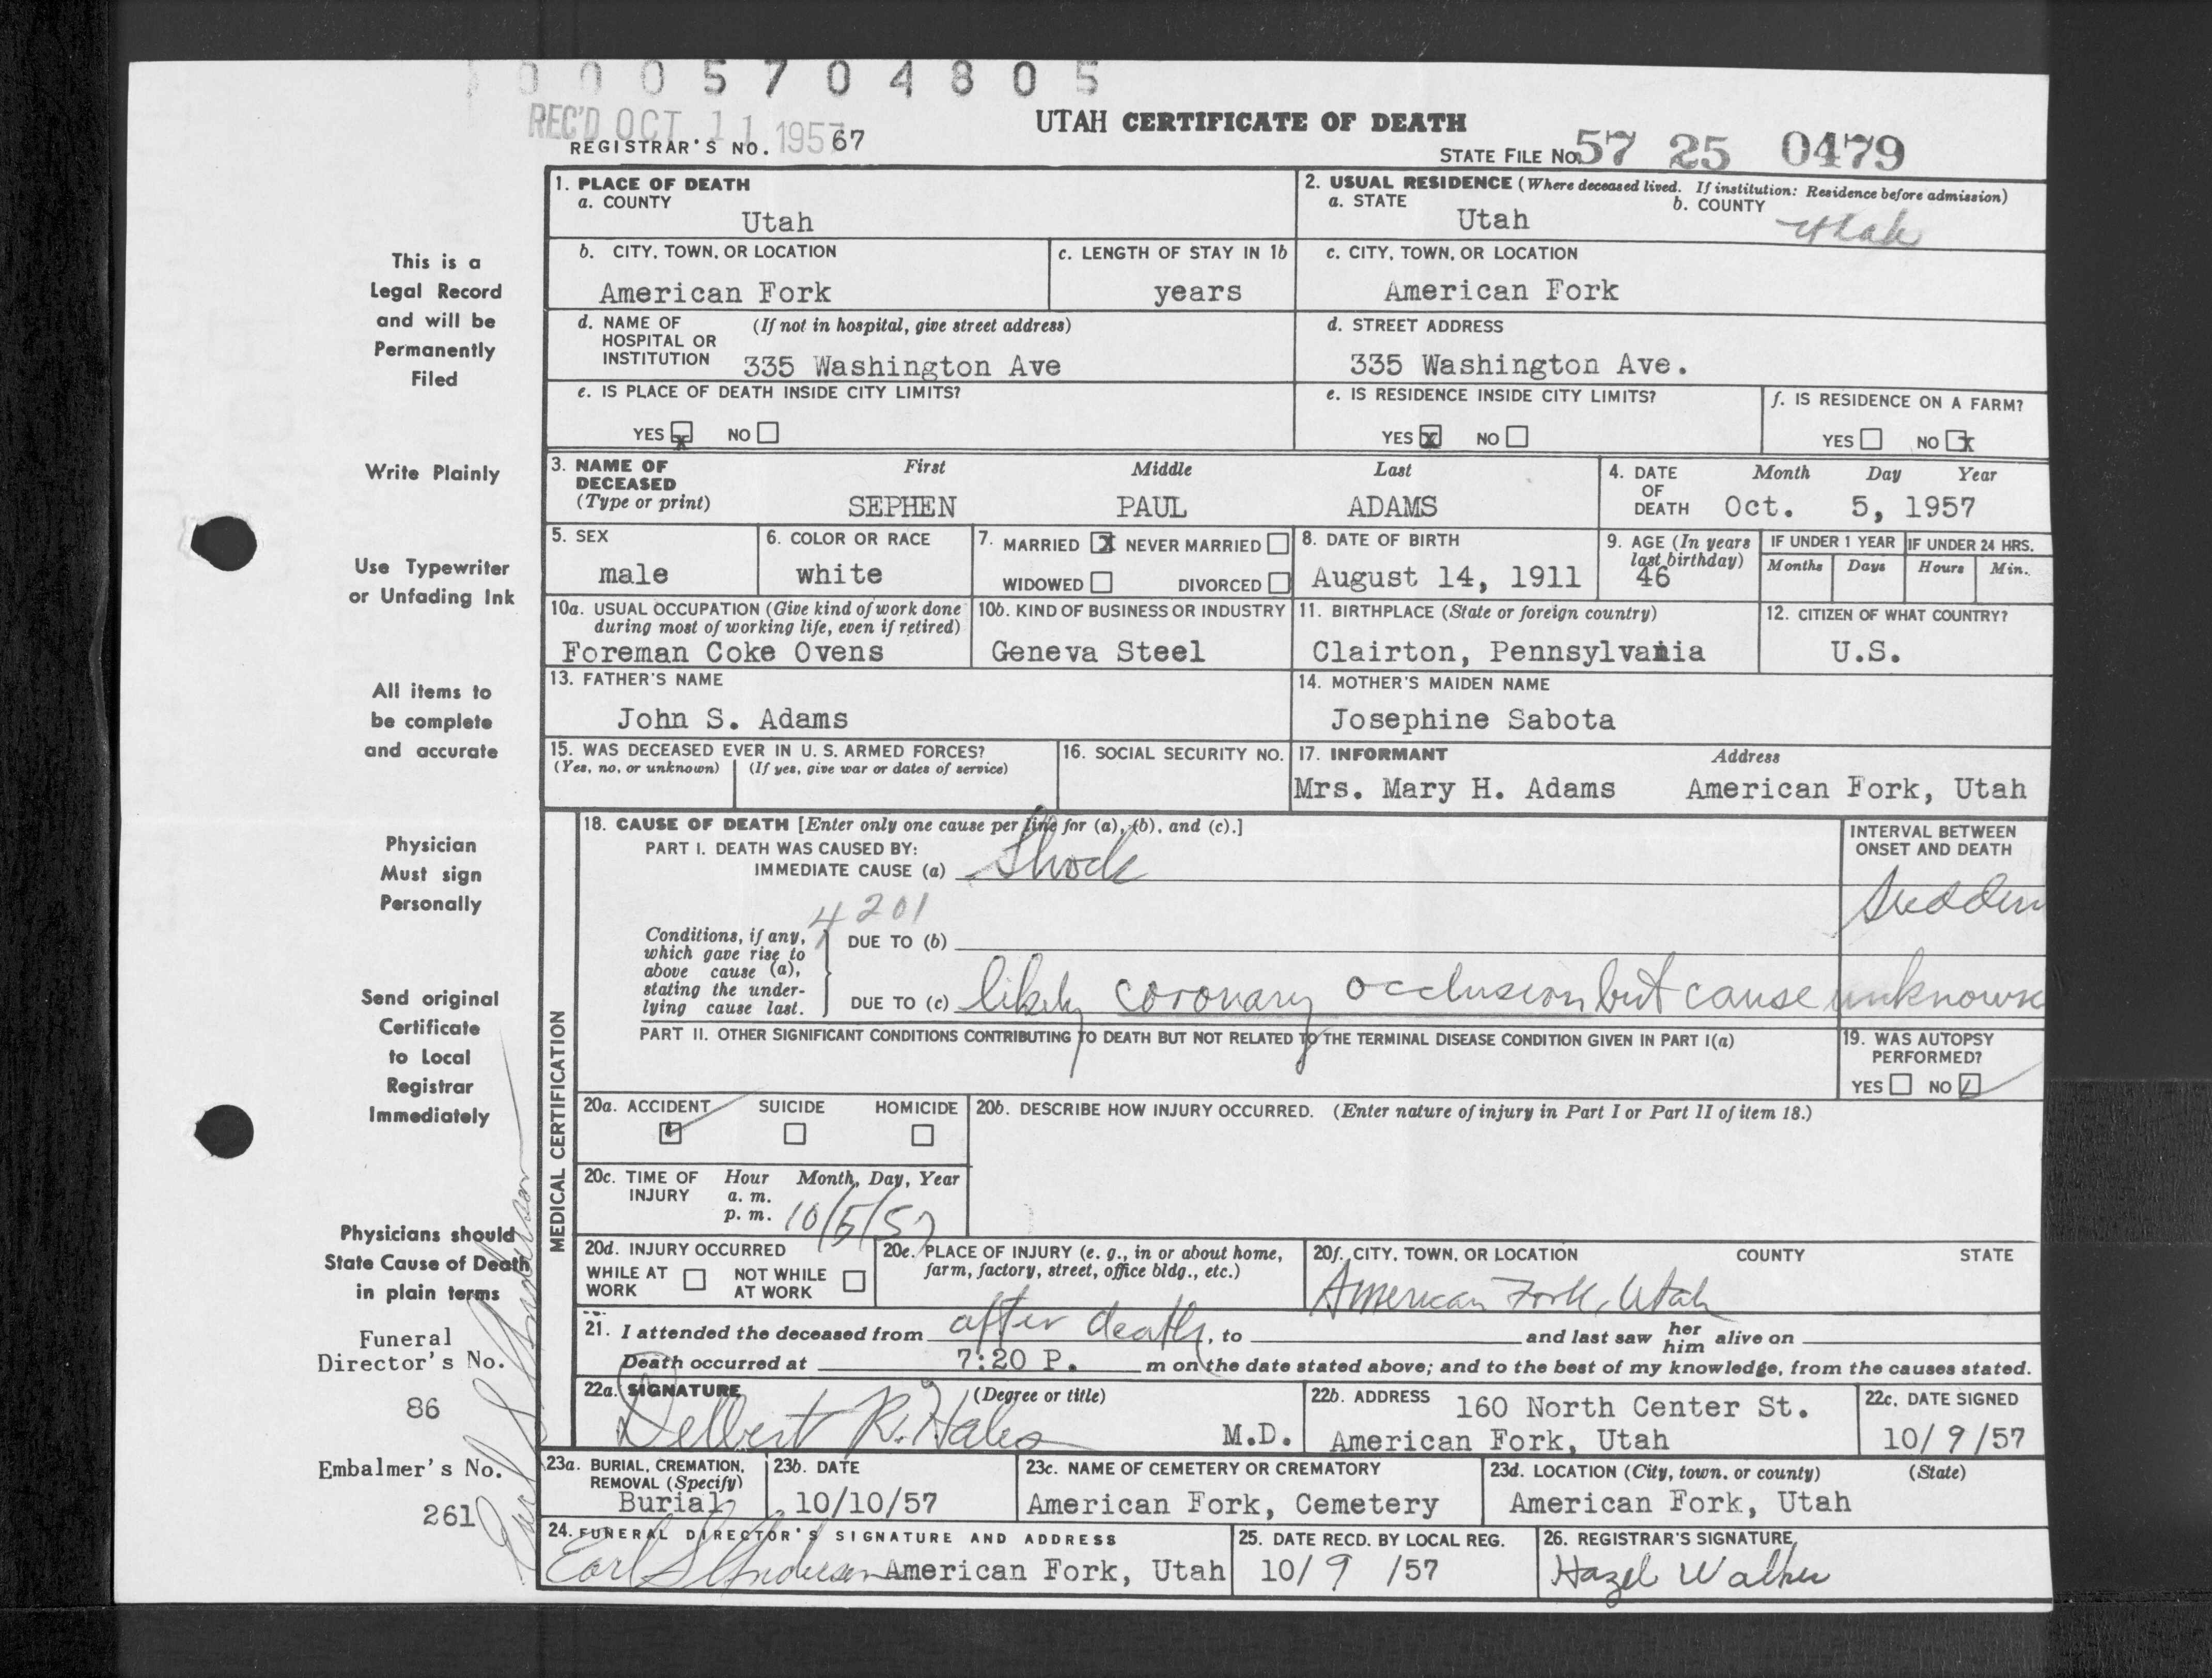 0005704805
REC'D OCT 11 1957
UTAH CERTIFICATE OF DEATH
REGISTRAR'S NO. 67
STATE FILE No. 57 25 0479
This is a
Legal Record
and will be
Permanently
Filed
Write Plainly
Use Typewriter
or Unfading Ink
All items to
be complete
and accurate
Physician
Must sign
Personally
Send original
Certificate
to Local
Registrar
Immediately
Physicians should
State Cause of Death
in plain terms
Funeral
Director's No.
86
Embalmer's No.
261
Earl S Anderson
1. PLACE OF DEATH
a. COUNTY
Utah
2. USUAL RESIDENCE (Where deceased lived. If institution: Residence before admission)
a. STATE
Utah
b. COUNTY
Utah
b. CITY, TOWN, OR LOCATION
American Fork
c. LENGTH OF STAY IN 1b
years
c. CITY, TOWN, OR LOCATION
American Fork
d. NAME OF (If not in hospital, give street address)
HOSPITAL OR
INSTITUTION 335 Washington Ave
d. STREET ADDRESS
335 Washington Ave.
e. IS PLACE OF DEATH INSIDE CITY LIMITS?
YES x NO
e. IS RESIDENCE INSIDE CITY LIMITS?
YES x NO
f. IS RESIDENCE ON A FARM?
YES NO x
3. NAME OF
DECEASED
(Type or print)
First Middle Last
SEPHEN PAUL ADAMS
4. DATE
OF
DEATH
Month Day Year
Oct. 5, 1957
5. SEX
male
6. COLOR OR RACE
white
7. MARRIED X NEVER MARRIED
WIDOWED DIVORCED
8. DATE OF BIRTH
August 14, 1911
9. AGE (In years
last birthday)
46
IF UNDER 1 YEAR
Months Days
IF UNDER 24 HRS.
Hours Min.
10a. USUAL OCCUPATION (Give kind of work done
during most of working life, even if retired)
Foreman Coke Ovens
10b. KIND OF BUSINESS OR INDUSTRY
Geneva Steel
11. BIRTHPLACE (State or foreign country)
Clairton, Pennsylvania
12. CITIZEN OF WHAT COUNTRY?
U.S.
13. FATHER'S NAME
John S. Adams
14. MOTHER'S MAIDEN NAME
Josephine Sabota
15. WAS DECEASED EVER IN U. S. ARMED FORCES?
(Yes, no, or unknown) (If yes, give war or dates of service)
16. SOCIAL SECURITY NO.
17. INFORMANT Address
Mrs. Mary H. Adams American Fork, Utah
MEDICAL CERTIFICATION
18. CAUSE OF DEATH [Enter only one cause per line for (a), (b), and (c).]
PART I. DEATH WAS CAUSED BY:
IMMEDIATE CAUSE (a) Shock
INTERVAL BETWEEN
ONSET AND DEATH
Sudden
4201
Conditions, if any,
which gave rise to
above cause (a),
stating the under-
lying cause last.
DUE TO (b)
DUE TO (c) likely coronary occlusion but cause unknown
PART II. OTHER SIGNIFICANT CONDITIONS CONTRIBUTING TO DEATH BUT NOT RELATED TO THE TERMINAL DISEASE CONDITION GIVEN IN PART I(a)
19. WAS AUTOPSY
PERFORMED?
YES NO
20a. ACCIDENT SUICIDE HOMICIDE
20b. DESCRIBE HOW INJURY OCCURRED. (Enter nature of injury in Part I or Part II of item 18.)
20c. TIME OF
INJURY
Hour Month, Day, Year
a. m.
p. m. 10/5/57
20d. INJURY OCCURRED
WHILE AT
WORK
NOT WHILE
AT WORK
20e. PLACE OF INJURY (e. g., in or about home,
farm, factory, street, office bldg., etc.)
20f. CITY, TOWN, OR LOCATION COUNTY STATE
American Fork, Utah
21. I attended the deceased from after death, to and last saw her him alive on
Death occurred at 7:20 P. m on the date stated above; and to the best of my knowledge, from the causes stated.
22a. SIGNATURE (Degree or title)
Delbert R. Hales M.D.
22b. ADDRESS 160 North Center St.
American Fork, Utah
22c. DATE SIGNED
10/9/57
23a. BURIAL, CREMATION,
REMOVAL (Specify)
Burial
23b. DATE
10/10/57
23c. NAME OF CEMETERY OR CREMATORY
American Fork, Cemetery
23d. LOCATION (City, town, or county) (State)
American Fork, Utah
24. FUNERAL DIRECTOR'S SIGNATURE AND ADDRESS
Earl S Anderson American Fork, Utah
25. DATE RECD. BY LOCAL REG.
10/9/57
26. REGISTRAR'S SIGNATURE
Hazel Walker